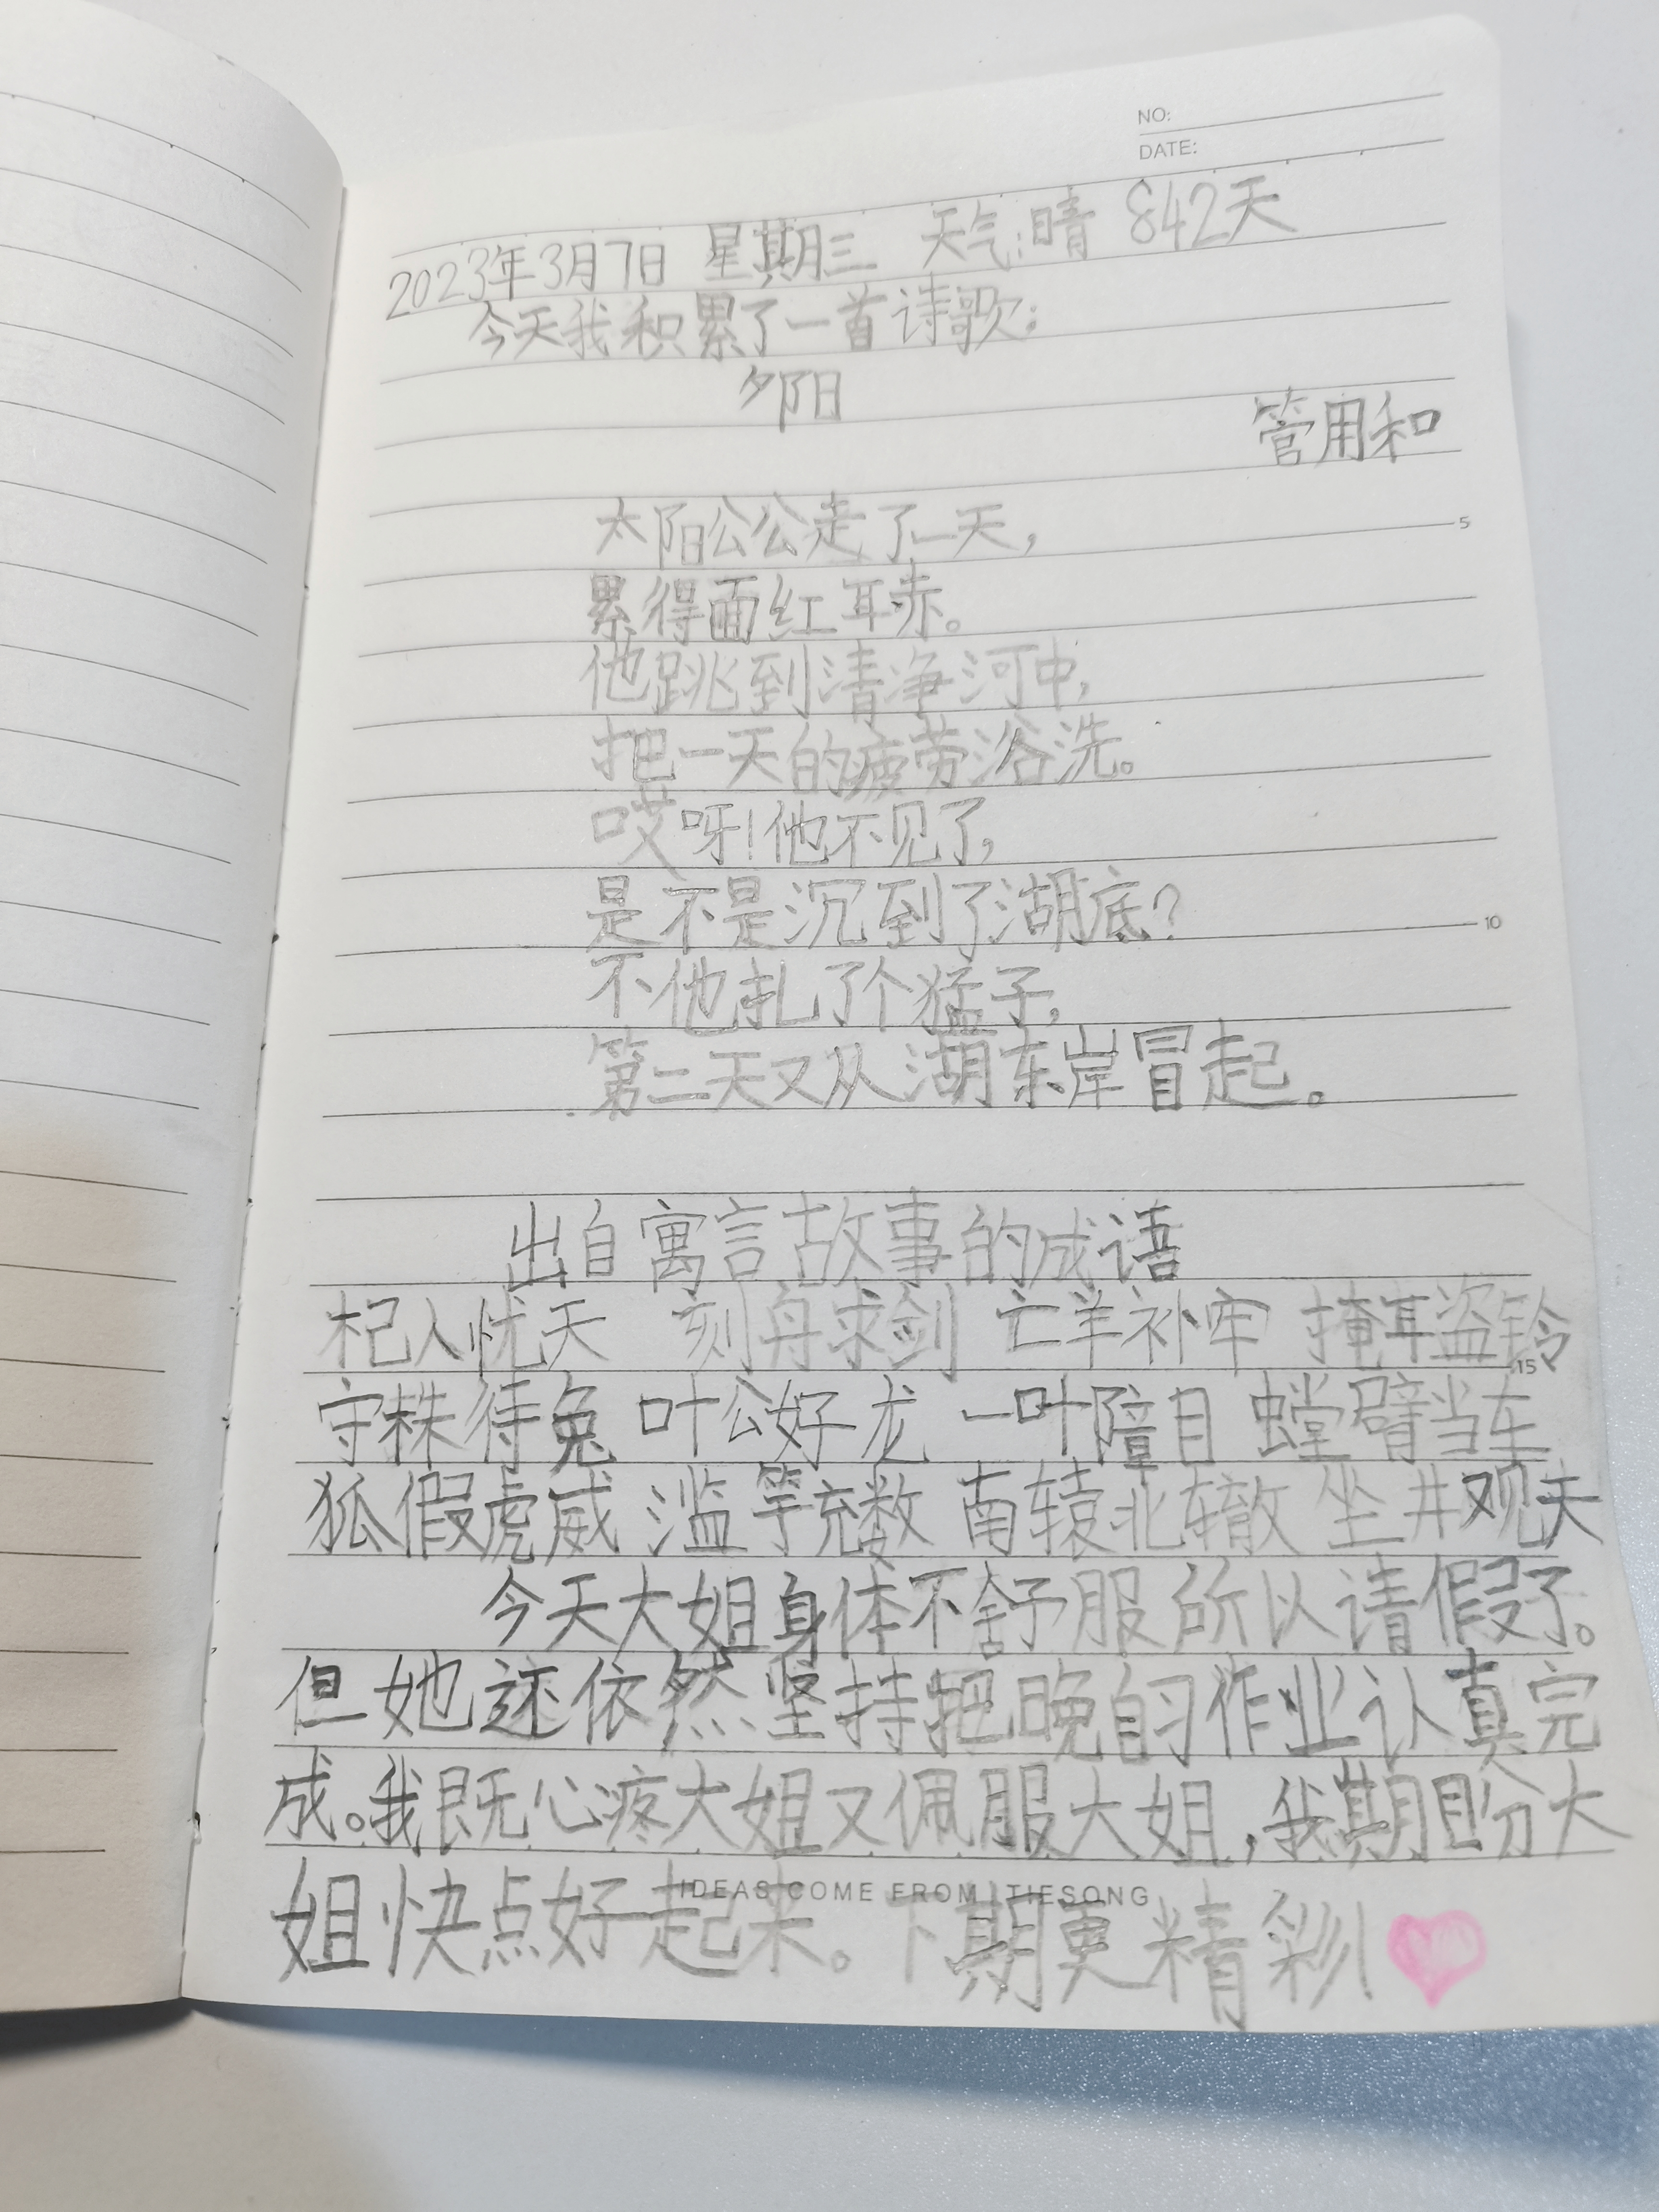 NO:
DATE:
2023年3月7日 星期三 天气:晴 842天
今天我积累了一首诗歌:
夕阳
管用和
太阳公公走了一天,
5
累得面红耳赤。
他跳到清净河中,
把一天的疲劳浴洗。
哎呀!他不见了,
是不是沉到了湖底?
10
不他扎了个猛子,
第二天又从湖东岸冒起。
出自寓言故事的成语
杞人忧天 刻舟求剑 亡羊补牢 掩耳盗铃
15
守株待兔 叶公好龙 一叶障目 螳臂当车
狐假虎威 滥竽充数 南辕北辙 坐井观天
今天大姐身体不舒服所以请假了。
但她还依然坚持把晚自习作业认真完
成。我既心疼大姐又佩服大姐,我期盼大
姐快点好起来。下期更精彩!
IDEAS COME FROM TIESONG